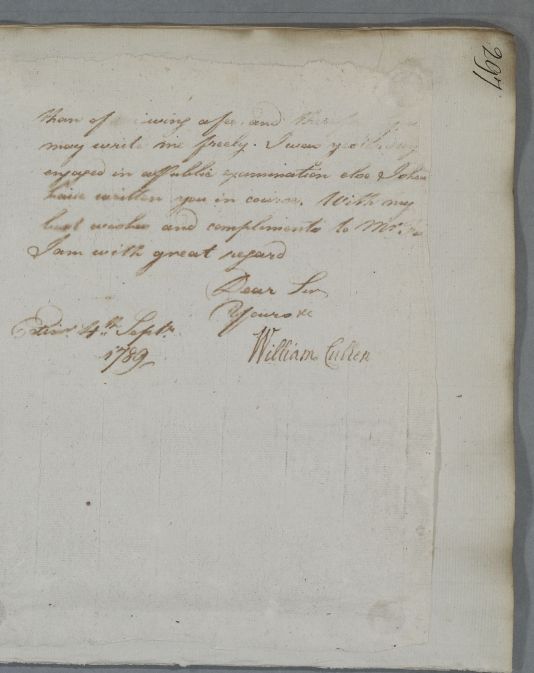 297
than of wing a fee, and
may write me freely. I was yesterday
engaged in a Publick examination else I shou
have written you in course. With my
best wishes and compliments to Mr.
I am with great regard
Dear Sir
Yours &c
Edinr. 4th Septr.
1789
William Cullen